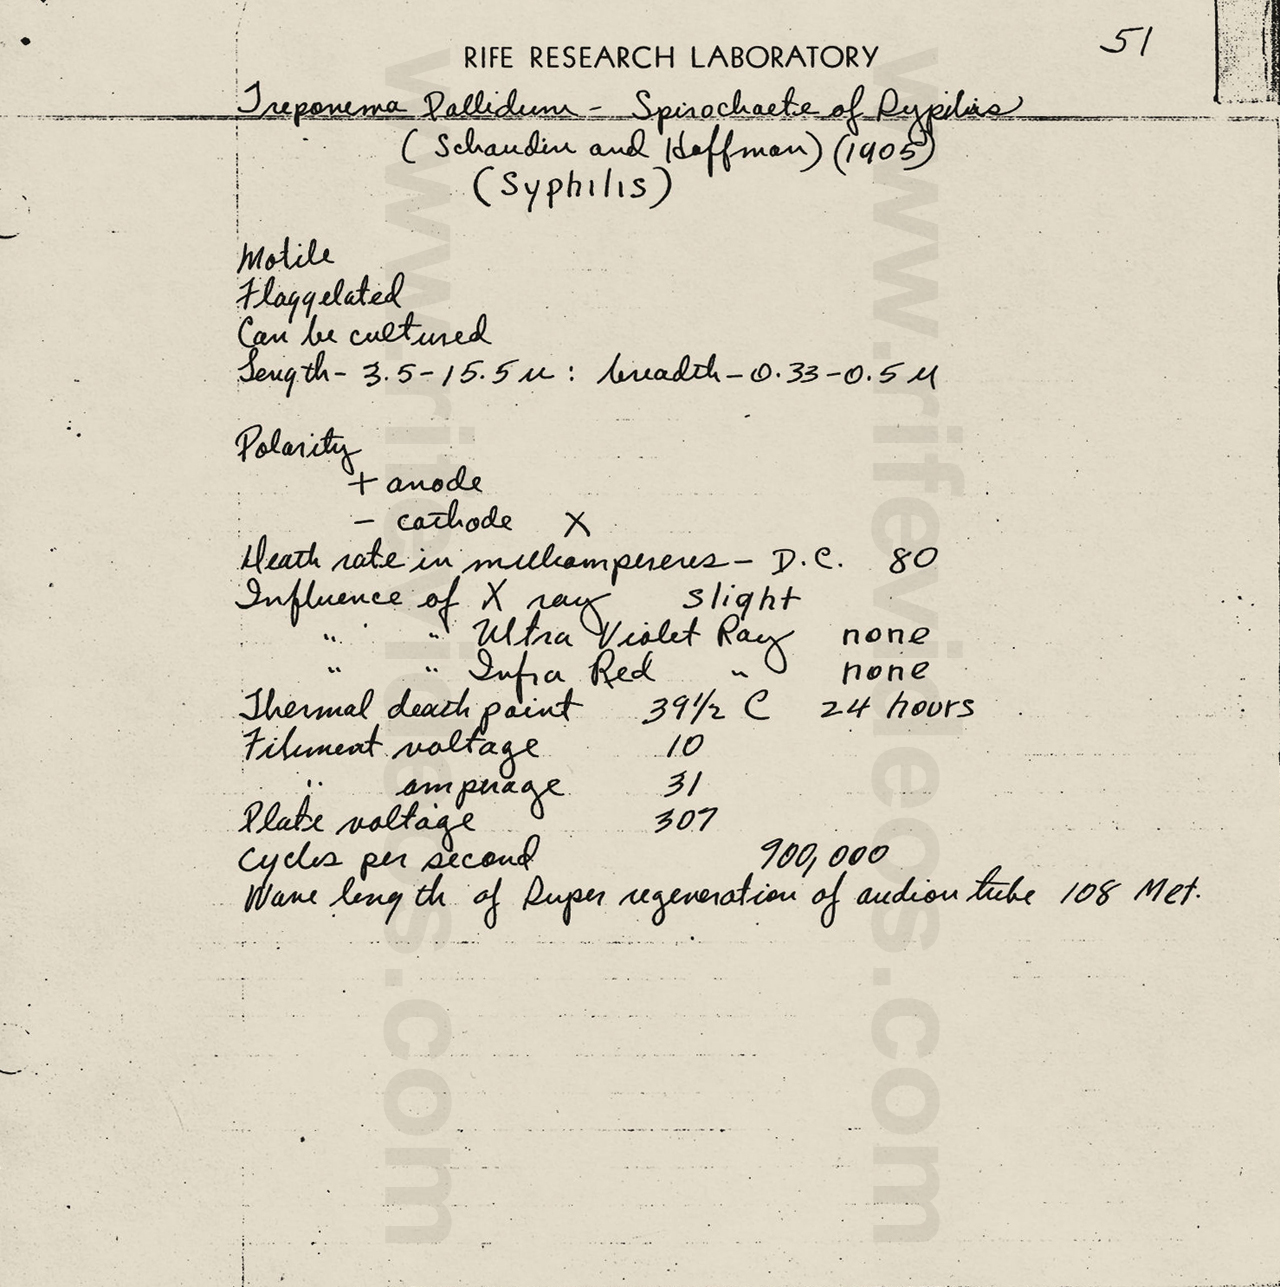 51
RIFE RESEARCH LABORATORY
Treponema Pallidum - Spirochaete of Sypilis
(Schaudin and Hoffman) (1905)
(Syphilis)
Motile
Flaggelated
Can be cultured
Length - 3.5-15.5 u : breadth - 0.33-0.5 u
Polarity
+ anode
- cathode X
Death rate in milliamperes - D.C. 80
Influence of X ray slight
" " Ultra Violet Ray none
" " Infra Red " none
Thermal death point 39 1/2 C 24 hours
Filiment voltage 10
" amperage 31
Plate voltage 307
Cycles per second 900,000
Wave length of Super regeneration of audion tube 108 Met.
www.rifevideos.com
www.rifevideos.com